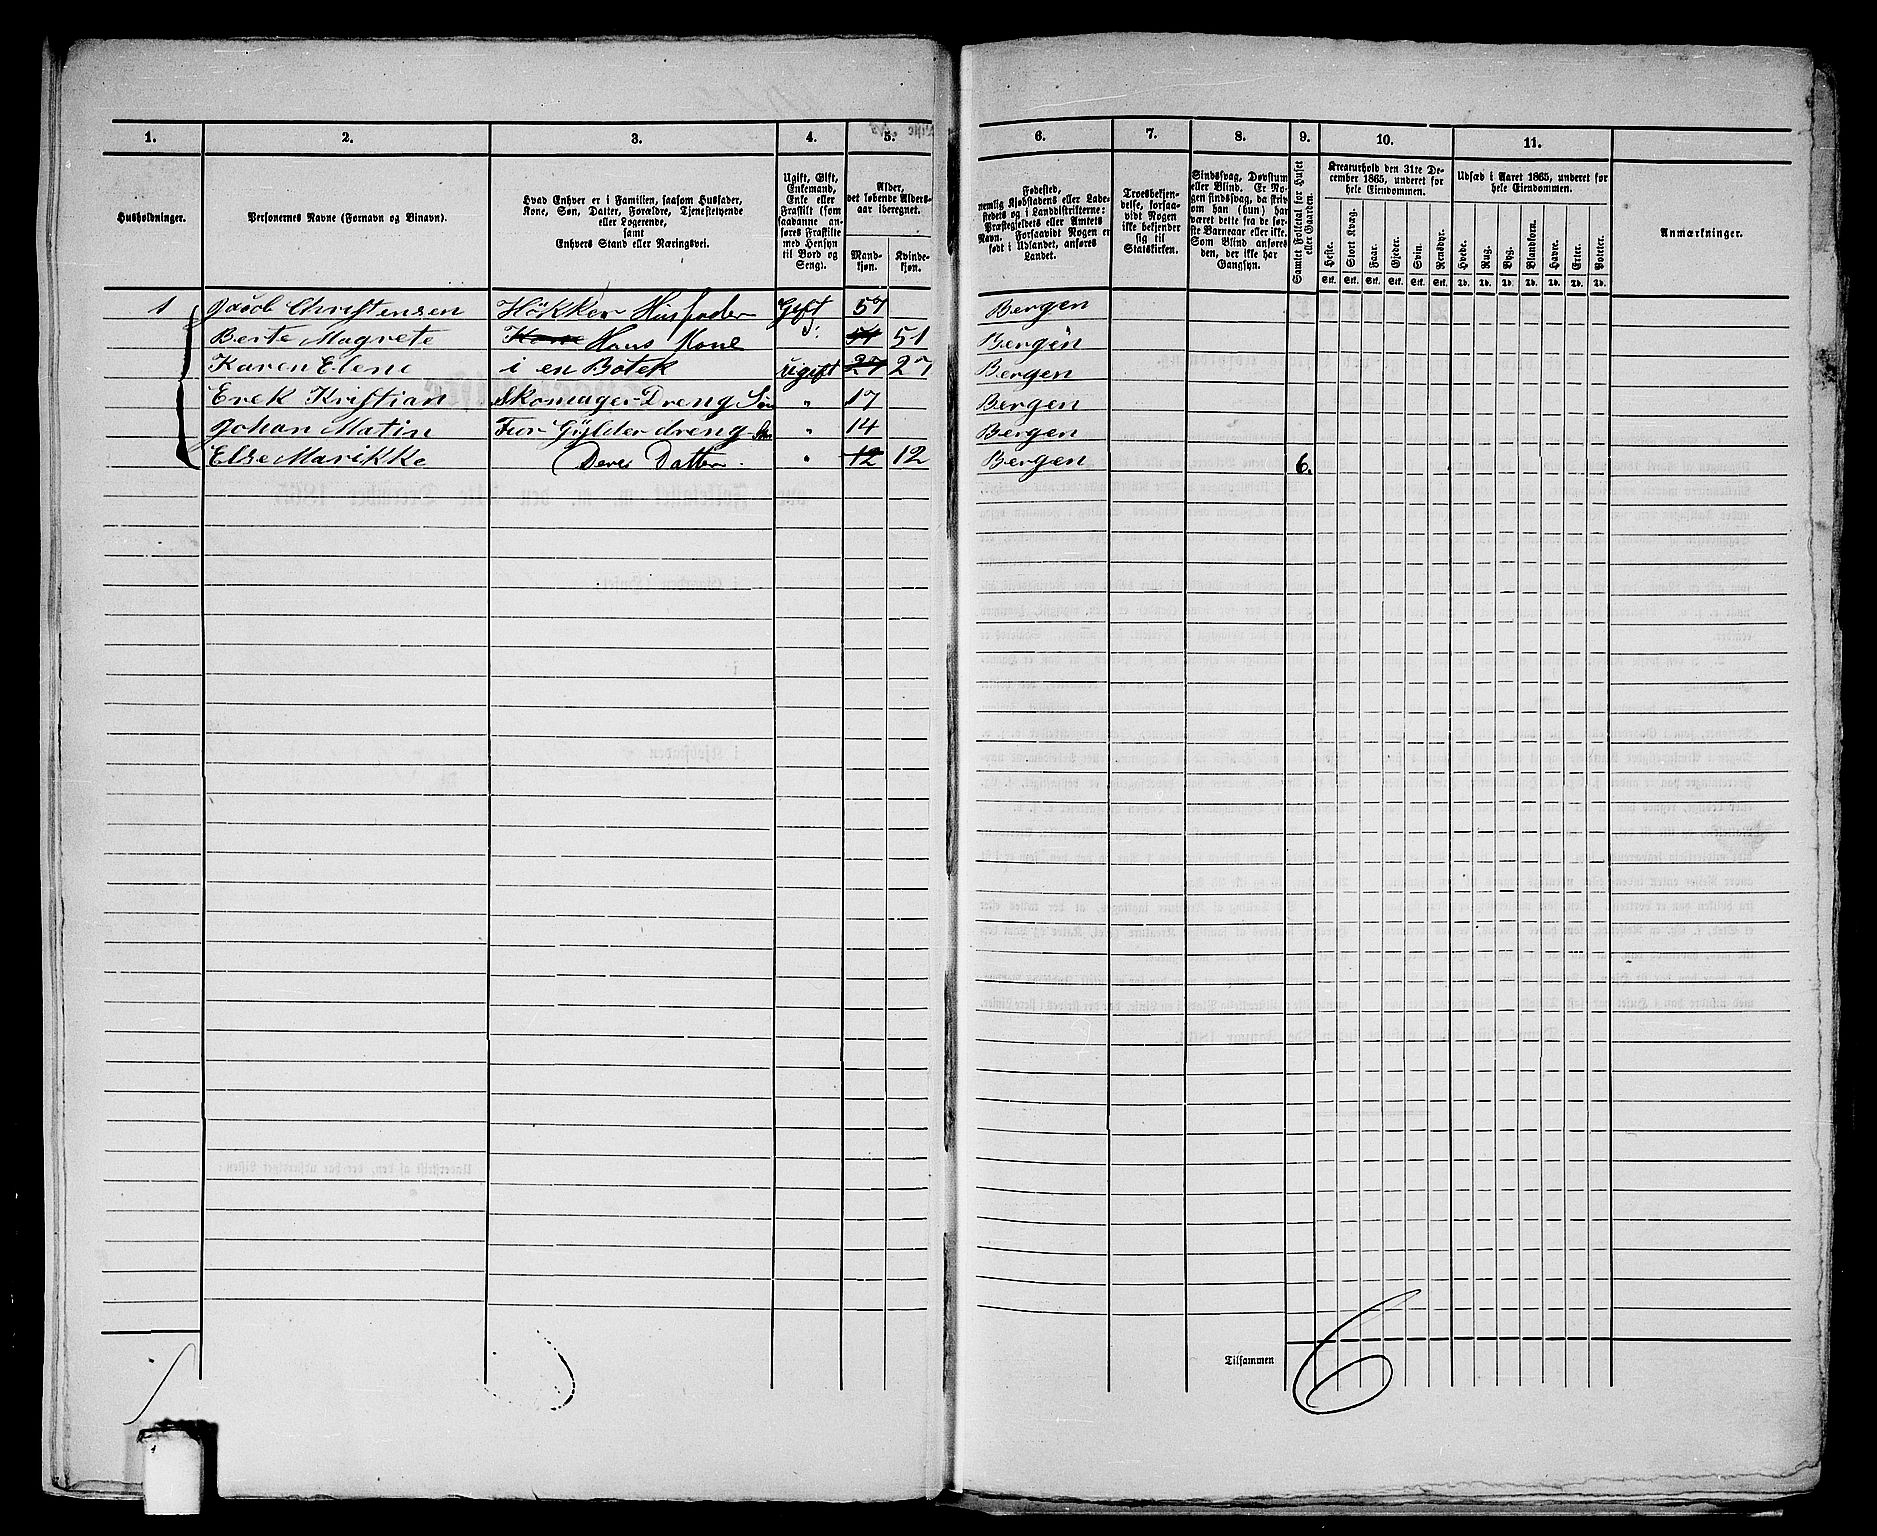 1. 2. 3. 4. 5. 6. 7. 8. 9. 10. 11.
Husholdninger.
Personernes Navne (Fornavn og Binavn).
Hvad Enhver er i Familien, saasom Husfader,
Kone, Søn, Datter, Forældre, Tjenestetyende
eller Logerende,
samt
Enhvers Stand eller Næringsvei.
Ugift, Gift,
Enkemand,
Enke eller
Fraskilt (som
saadanne an-
føres Fraskilte
med Hensyn
til Bord og
Seng).
Alder,
det løbende Alders-
aar iberegnet.
Mand-
kjøn.
Kvinde-
kjøn.
Fødested,
nemlig Kjøbstadens eller Lade-
stedets og i Landdistrikterne:
Præstegjeldets eller Amtets
Navn. Forsaavidt Nogen er
født i Udlandet, anføres
Landet.
Troesbekjen-
delse, forsaa-
vidt Nogen
ikke bekjender
sig til
Statskirken.
Sindssvag, Døvstum
eller Blind. Er No-
gen sindssvag, da skriv
om han (hun) har
været dette fra de før-
ste Barneaar eller ikke.
Som Blind anføres
den, der ikke har
Gangsyn.
Samlet Folketal for Huset
eller Gaarden.
Kreaturhold den 31te De-
cember 1865, underet for
hele Eiendommen.
Heste. Stort Kvæg. Faar. Gjeder. Svin. Rensdyr.
Stk. Stk. Stk. Stk. Stk. Stk.
Udsæd i Aaret 1865, underet for
hele Eiendommen.
Hvede. Rug. Byg. Blandkorn. Havre. Erter. Poteter.
Td. Td. Td. Td. Td. Td. Td.
Anmærkninger.
1 Jacob Christensen Hökker Husfader Gift 57 Bergen
Berte Magrete Kone Hans Kone 51 51 Bergen
Karen Elene i en Botek ugift 27 27 Bergen
Erek Kristian Skomager-Dreng Sön " 17 Bergen
Johan Matin For Gylder dreng Sön " 14 Bergen
Else Marikke Deres Datter. " 12 12 Bergen 6.
Tilsammen 6